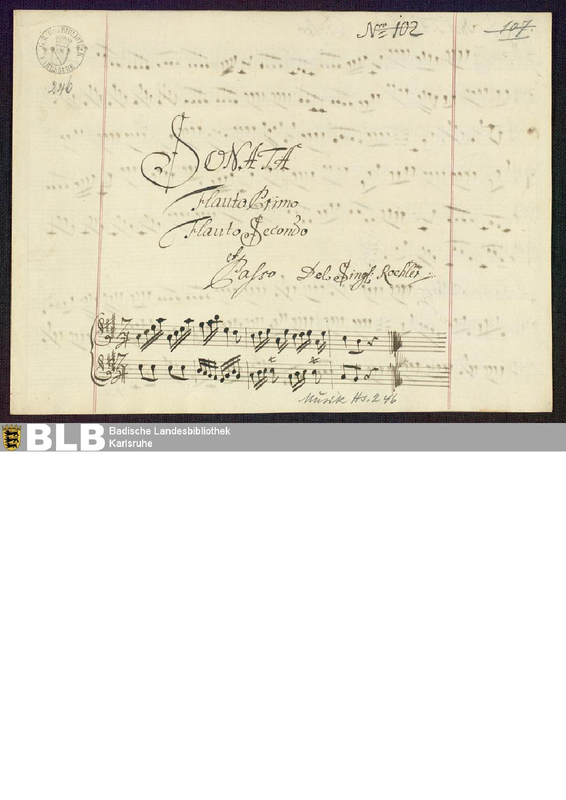 Nro 102
107.
246
SONATA
Flauto Primo
Flauto Secondo
et
Basso Del Singl: Roehler
Musik Hs. 246
BLB Badische Landesbibliothek
Karlsruhe